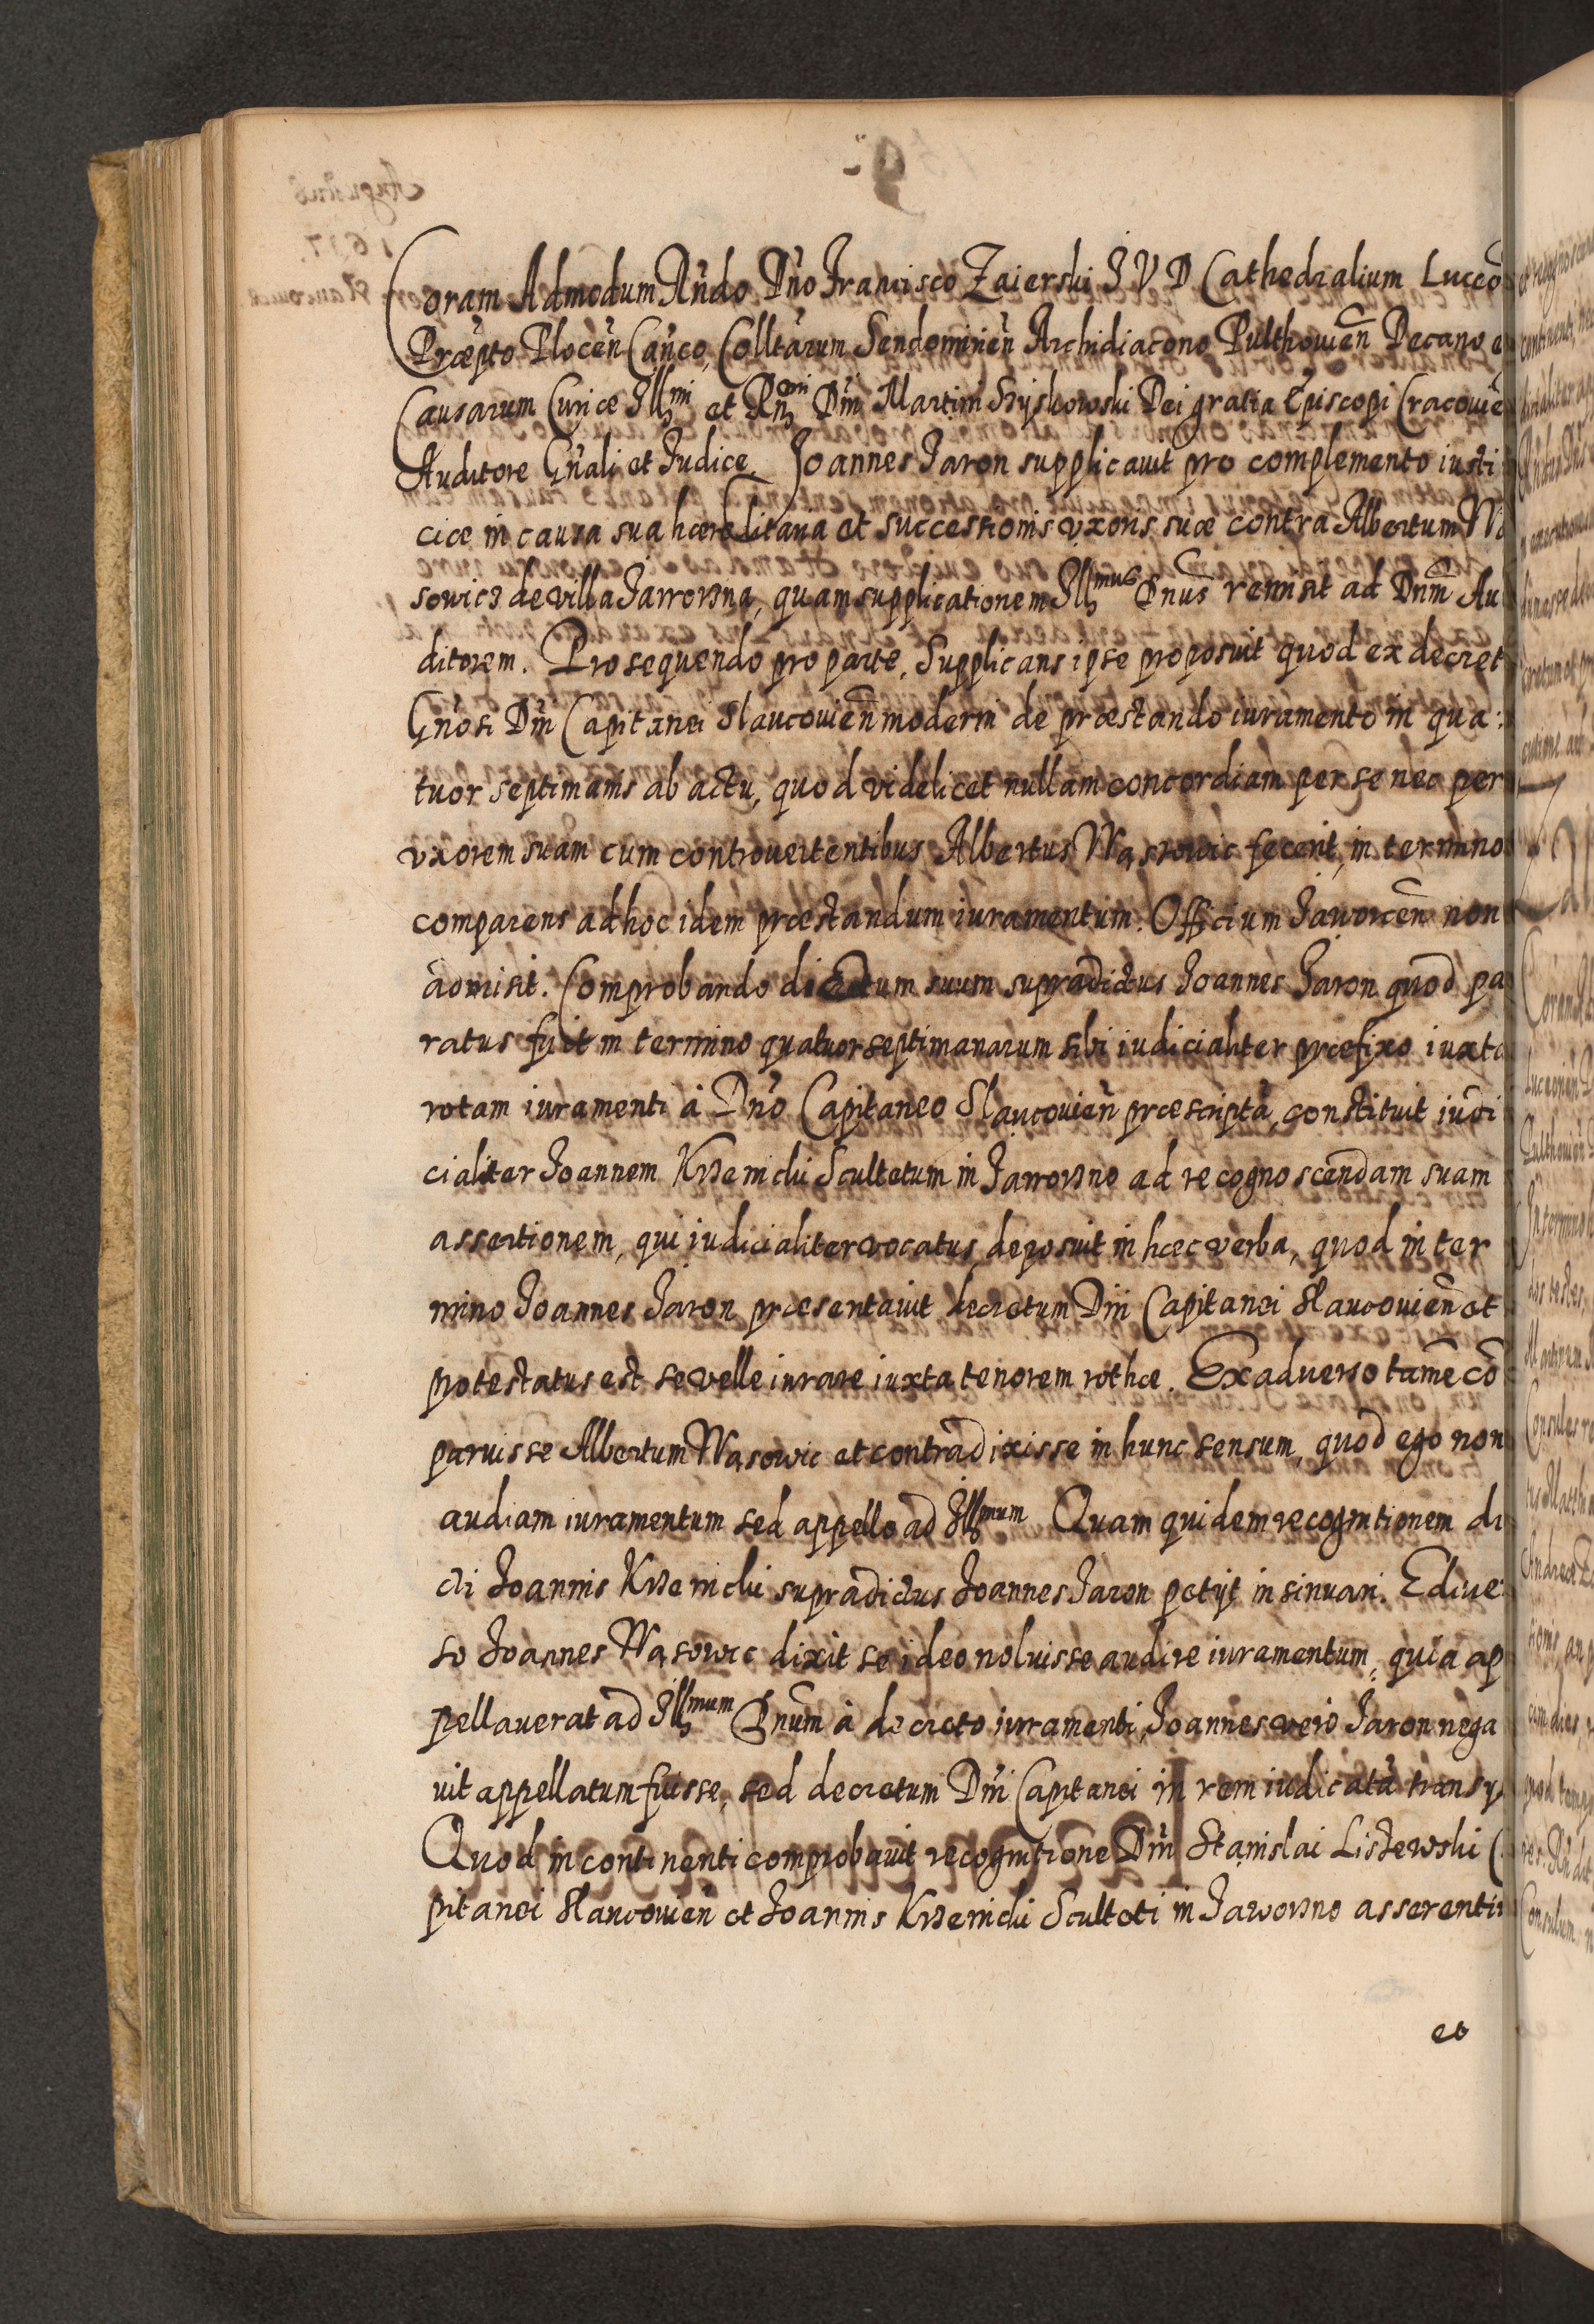 Coram Admodum Rńdo Dńo Francisco Zaierski J V D Cathedralium Lucco
Præpto Ploceń Cańco, Colltarum Sendomirień Archidiacono Pulthouień Decano e
Causarum Curiæ Illmi et Rndmi Dńi Martini Szyskowski Dei gratia Episcopi Cracouie
Auditore Gńali et Judice. Joannes Jaron supplicauit pro complemento iusti
ciæ in causa sua hæreditaria et successionis vxoris suæ contra Albertum Wa
sowicz de villa Jaworzna, quam supplicationem Illmus Dnus remisit ad Dnm Au
ditorem. Prosequendo pro parte. Supplicans ipse proposuit quod ex decret
Gńosi Dńi Capitanei Slaucouień moderni de præstando iuramento in qua:
tuor septimanis ab actu, quod videlicet nullam concordiam per se nec per
vxorem suam cum controuertentibus Albertus Wasowic fecerit, in termino
comparens ad hoc idem præstandum iuramentum. Officium Jaworceń non
admisit. Comprobando dictum suum supradictus Joannes Jaron quod pa
ratus fuit in termino quatuor septimanarum sibi iudicialiter præfixo iuxta
rotam iuramenti à Dńo Capitaneo Slaucouień præscriptã, constituit iudi
cialiter Joannem Krzemicki Scultetum in Jaworzno ad recognoscendam suam
assertionem, qui iudicialiter vocatus, deposuit in hæc verba, quod in ter
mino Joannes Jaron præsentauit decretum Dńi Capitanei Slaucouień et
protestatus est se velle iurare iuxta tenorem rothæ. Ex aduerso tamẽ cõ
paruisse Albertum Wasowic et contradixisse in hunc sensum, quod ego non
audiam iuramentum sed appello ad Illmum Quam quidem recognitionem di
cti Joannis Krzemicki supradictus Joannes Jaron petijt insinuari. E diue
so Joannes Wasowic dixit se ideo noluisse audire iuramentum, quia ap
pellauerat ad Illmum Dnum à decreto iuramenti, Joannes vero Jaron nega
uit appellatum fuisse, sed decretum Dńi Capitanei in rem iudicatã transy
Quod in continenti comprobauit recognitione Dńi Stanislai Listewski C
pitanei Slaucouień et Joannis Krzemicki Sculteti in Jaworzno asserentiu
et